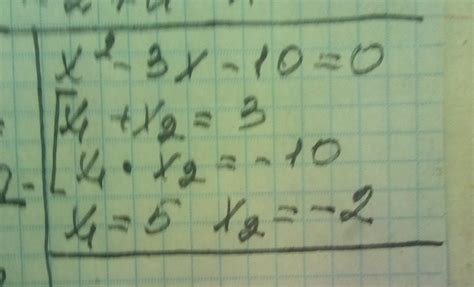 x² - 3x - 10 = 0
x₁ + x₂ = 3
x₁ • x₂ = -10
x₁ = 5 x₂ = -2